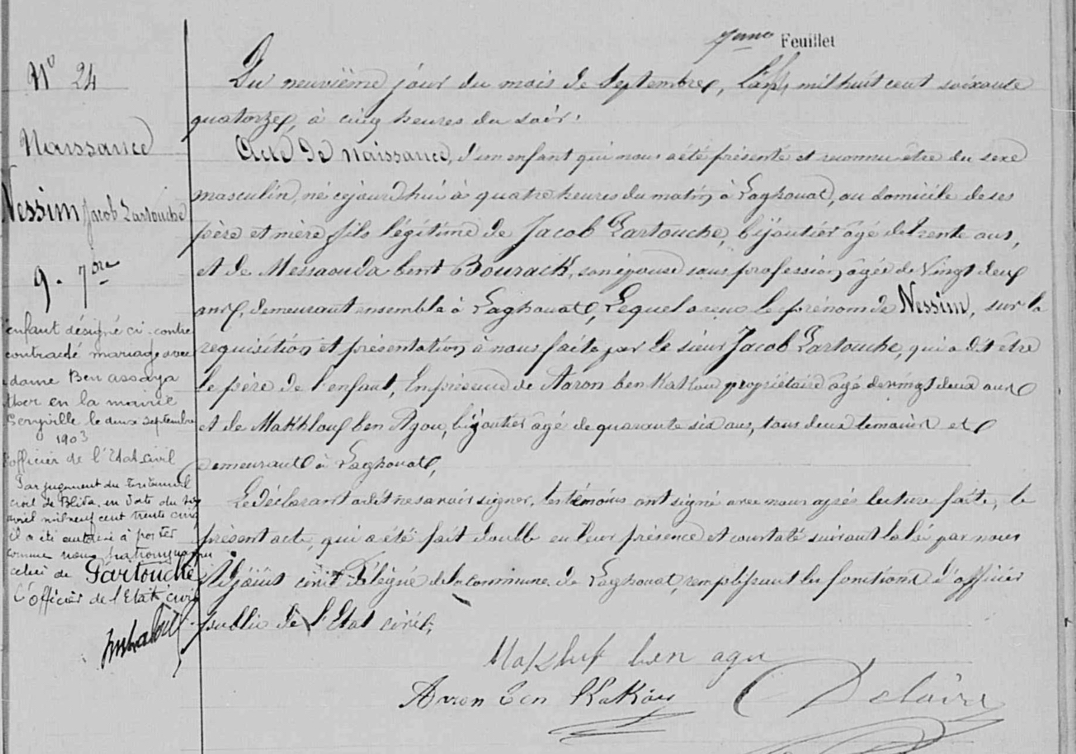 7eme Feuillet
N° 24
Naissance
Nessim Jacob Partouche
9. 7bre
l'enfant désigné ci-contre
contracté mariage avec
dame Ben assaya
en la mairie
Geryville le deux septembre
1903
l'officier de l'Etat civil
Par jugement du tribunal
civil de Blida, en date du
avril mil neuf cent trente cinq
il a été autorisé à porter
comme nom patronymique
celui de Partouche
L'officier de l'Etat civil
Du neuvième jour du mois de Septembre, L'an mil huit cent soixante
quatorze, à cinq heures du soir.
Acte de naissance, d'un enfant qui nous a été présenté et reconnu être du sexe
masculin, né cejourd'hui à quatre heures du matin, à Laghouat, au domicile de ses
père et mère, fils légitime de Jacob Partouche, bijoutier âgé de trente ans,
et de Messaouda bent Bourack, son épouse sans profession, âgée de Vingt deux
ans, demeurant ensemble à Laghouat, Lequel a reçu le prénom de Nessim, sur la
requisition et présentation à nous faite par le sieur Jacob Partouche, qui a dit être
le père de l'enfant, En présence de Aaron ben Kakou propriétaire âgé de vingt deux ans
et de Makhlouf ben Agou, bijoutier âgé de quarante six ans, tous deux temoins et
demeurant à Laghouat,
Le déclarant a dit ne savoir signer, les témoins ont signé avec nous après lecture faite, le
présent acte, qui a été fait double en leur présence et constaté suivant la loi par nous
Adjoint civil Délégué de la Commune de Laghouat, remplissant les fonctions d'officier
public de l'Etat civil.
Makhluf ben agu
Aaron ben Kakou